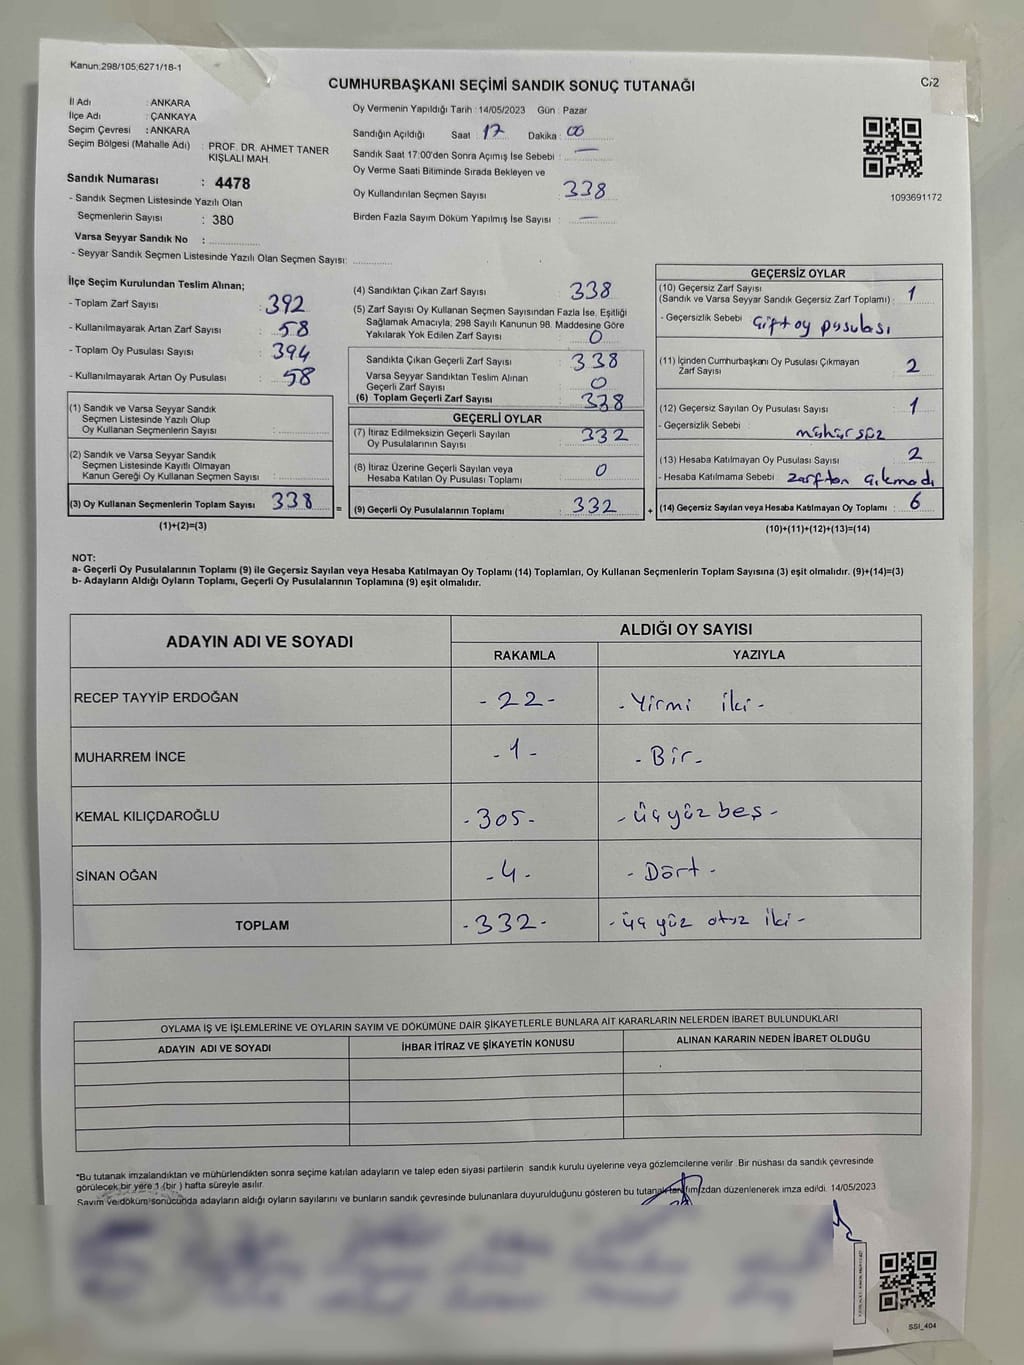 Kanun:298/105;6271/18-1
CUMHURBAŞKANI SEÇİMİ SANDIK SONUÇ TUTANAĞI
C:/2
İl Adı : ANKARA
İlçe Adı : ÇANKAYA
Seçim Çevresi : ANKARA
Seçim Bölgesi (Mahalle Adı) : PROF. DR. AHMET TANER
KIŞLALI MAH.
Sandık Numarası : 4478
- Sandık Seçmen Listesinde Yazılı Olan
Seçmenlerin Sayısı : 380
Varsa Seyyar Sandık No :
- Seyyar Sandık Seçmen Listesinde Yazılı Olan Seçmen Sayısı:
Oy Vermenin Yapıldığı Tarih : 14/05/2023 Gün : Pazar
Sandığın Açıldığı Saat : 17 Dakika : 00
Sandık Saat 17:00'den Sonra Açımış İse Sebebi : —
Oy Verme Saati Bitiminde Sırada Bekleyen ve
Oy Kullandırılan Seçmen Sayısı : 338
Birden Fazla Sayım Döküm Yapılmış İse Sayısı : —
1093691172
İlçe Seçim Kurulundan Teslim Alınan;
- Toplam Zarf Sayısı : 392
- Kullanılmayarak Artan Zarf Sayısı : 58
- Toplam Oy Pusulası Sayısı : 394
- Kullanılmayarak Artan Oy Pusulası : 58
(1) Sandık ve Varsa Seyyar Sandık
Seçmen Listesinde Yazılı Olup
Oy Kullanan Seçmenlerin Sayısı :
(2) Sandık ve Varsa Seyyar Sandık
Seçmen Listesinde Kayıtlı Olmayan
Kanun Gereği Oy Kullanan Seçmen Sayısı :
(3) Oy Kullanan Seçmenlerin Toplam Sayısı : 338 =
(1)+(2)=(3)
(4) Sandıktan Çıkan Zarf Sayısı : 338
(5) Zarf Sayısı Oy Kullanan Seçmen Sayısından Fazla İse, Eşitliği
Sağlamak Amacıyla; 298 Sayılı Kanunun 98. Maddesine Göre
Yakılarak Yok Edilen Zarf Sayısı : 0
Sandıkta Çıkan Geçerli Zarf Sayısı : 338
Varsa Seyyar Sandıktan Teslim Alınan
Geçerli Zarf Sayısı : 0
(6) Toplam Geçerli Zarf Sayısı : 338
GEÇERLİ OYLAR
(7) İtiraz Edilmeksizin Geçerli Sayılan
Oy Pusulalarının Sayısı : 332
(8) İtiraz Üzerine Geçerli Sayılan veya
Hesaba Katılan Oy Pusulası Toplamı : 0
(9) Geçerli Oy Pusulalarının Toplamı : 332 +
GEÇERSİZ OYLAR
(10) Geçersiz Zarf Sayısı
(Sandık ve Varsa Seyyar Sandık Geçersiz Zarf Toplamı) : 1
- Geçersizlik Sebebi : Çift oy pusulası
(11) İçinden Cumhurbaşkanı Oy Pusulası Çıkmayan
Zarf Sayısı : 2
(12) Geçersiz Sayılan Oy Pusulası Sayısı : 1
- Geçersizlik Sebebi : mühürsüz
(13) Hesaba Katılmayan Oy Pusulası Sayısı : 2
- Hesaba Katılmama Sebebi : zarftan çıkmadı
(14) Geçersiz Sayılan veya Hesaba Katılmayan Oy Toplamı : 6
(10)+(11)+(12)+(13)=(14)
NOT:
a- Geçerli Oy Pusulalarının Toplamı (9) ile Geçersiz Sayılan veya Hesaba Katılmayan Oy Toplamı (14) Toplamları, Oy Kullanan Seçmenlerin Toplam Sayısına (3) eşit olmalıdır. (9)+(14)=(3)
b- Adayların Aldığı Oyların Toplamı, Geçerli Oy Pusulalarının Toplamına (9) eşit olmalıdır.
ADAYIN ADI VE SOYADI
ALDIĞI OY SAYISI
RAKAMLA YAZIYLA
RECEP TAYYİP ERDOĞAN - 22 - - Yirmi iki -
MUHARREM İNCE - 1 - - Bir -
KEMAL KILIÇDAROĞLU - 305 - - üçyüz beş -
SİNAN OĞAN - 4 - - Dört -
TOPLAM - 332 - - üçyüz otuz iki -
OYLAMA İŞ VE İŞLEMLERİNE VE OYLARIN SAYIM VE DÖKÜMÜNE DAİR ŞİKAYETLERLE BUNLARA AİT KARARLARIN NELERDEN İBARET BULUNDUKLARI
ADAYIN ADI VE SOYADI İHBAR İTİRAZ VE ŞİKAYETİN KONUSU ALINAN KARARIN NEDEN İBARET OLDUĞU
*Bu tutanak imzalandıktan ve mühürlendikten sonra seçime katılan adayların ve talep eden siyasi partilerin sandık kurulu üyelerine veya gözlemcilerine verilir. Bir nüshası da sandık çevresinde
görülecek bir yere 1 (bir) hafta süreyle asılır.
Sayım ve döküm sonucunda adayların aldığı oyların sayılarını ve bunların sandık çevresinde bulunanlara duyurulduğunu gösteren bu tutanak tarafımızdan düzenlenerek imza edildi. 14/05/2023
SSI_404